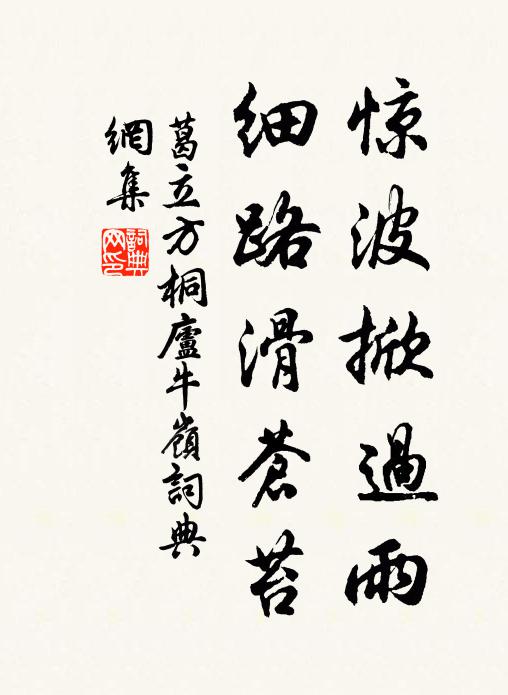 惊波掀過雨
細路滑蒼苔
葛立方桐廬牛嶺詞典
網集
詞典
网印